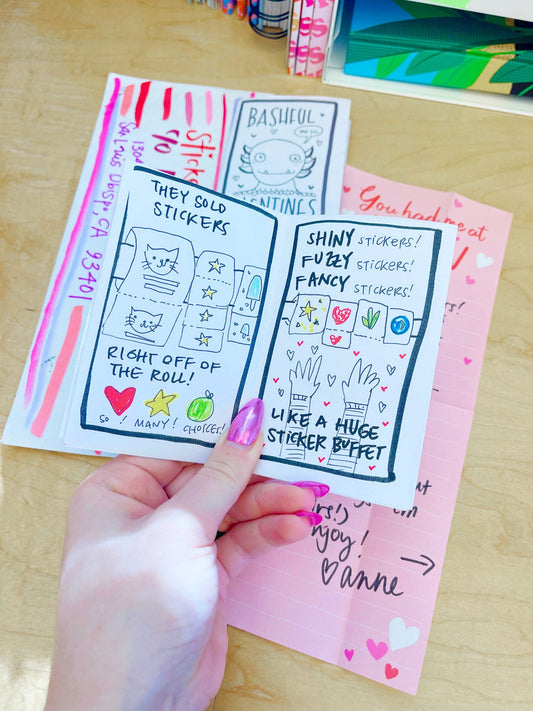 THEY SOLD
STICKERS
RIGHT OFF OF
THE ROLL!
SO! MANY! CHOICES!
SHINY STICKERS!
FUZZY STICKERS!
FANCY STICKERS!
LIKE A HUGE
STICKER BUFFET
BASHFUL
Sticke
San Luis Obispo, CA 93401
You had me at
enjoy!
♡anne